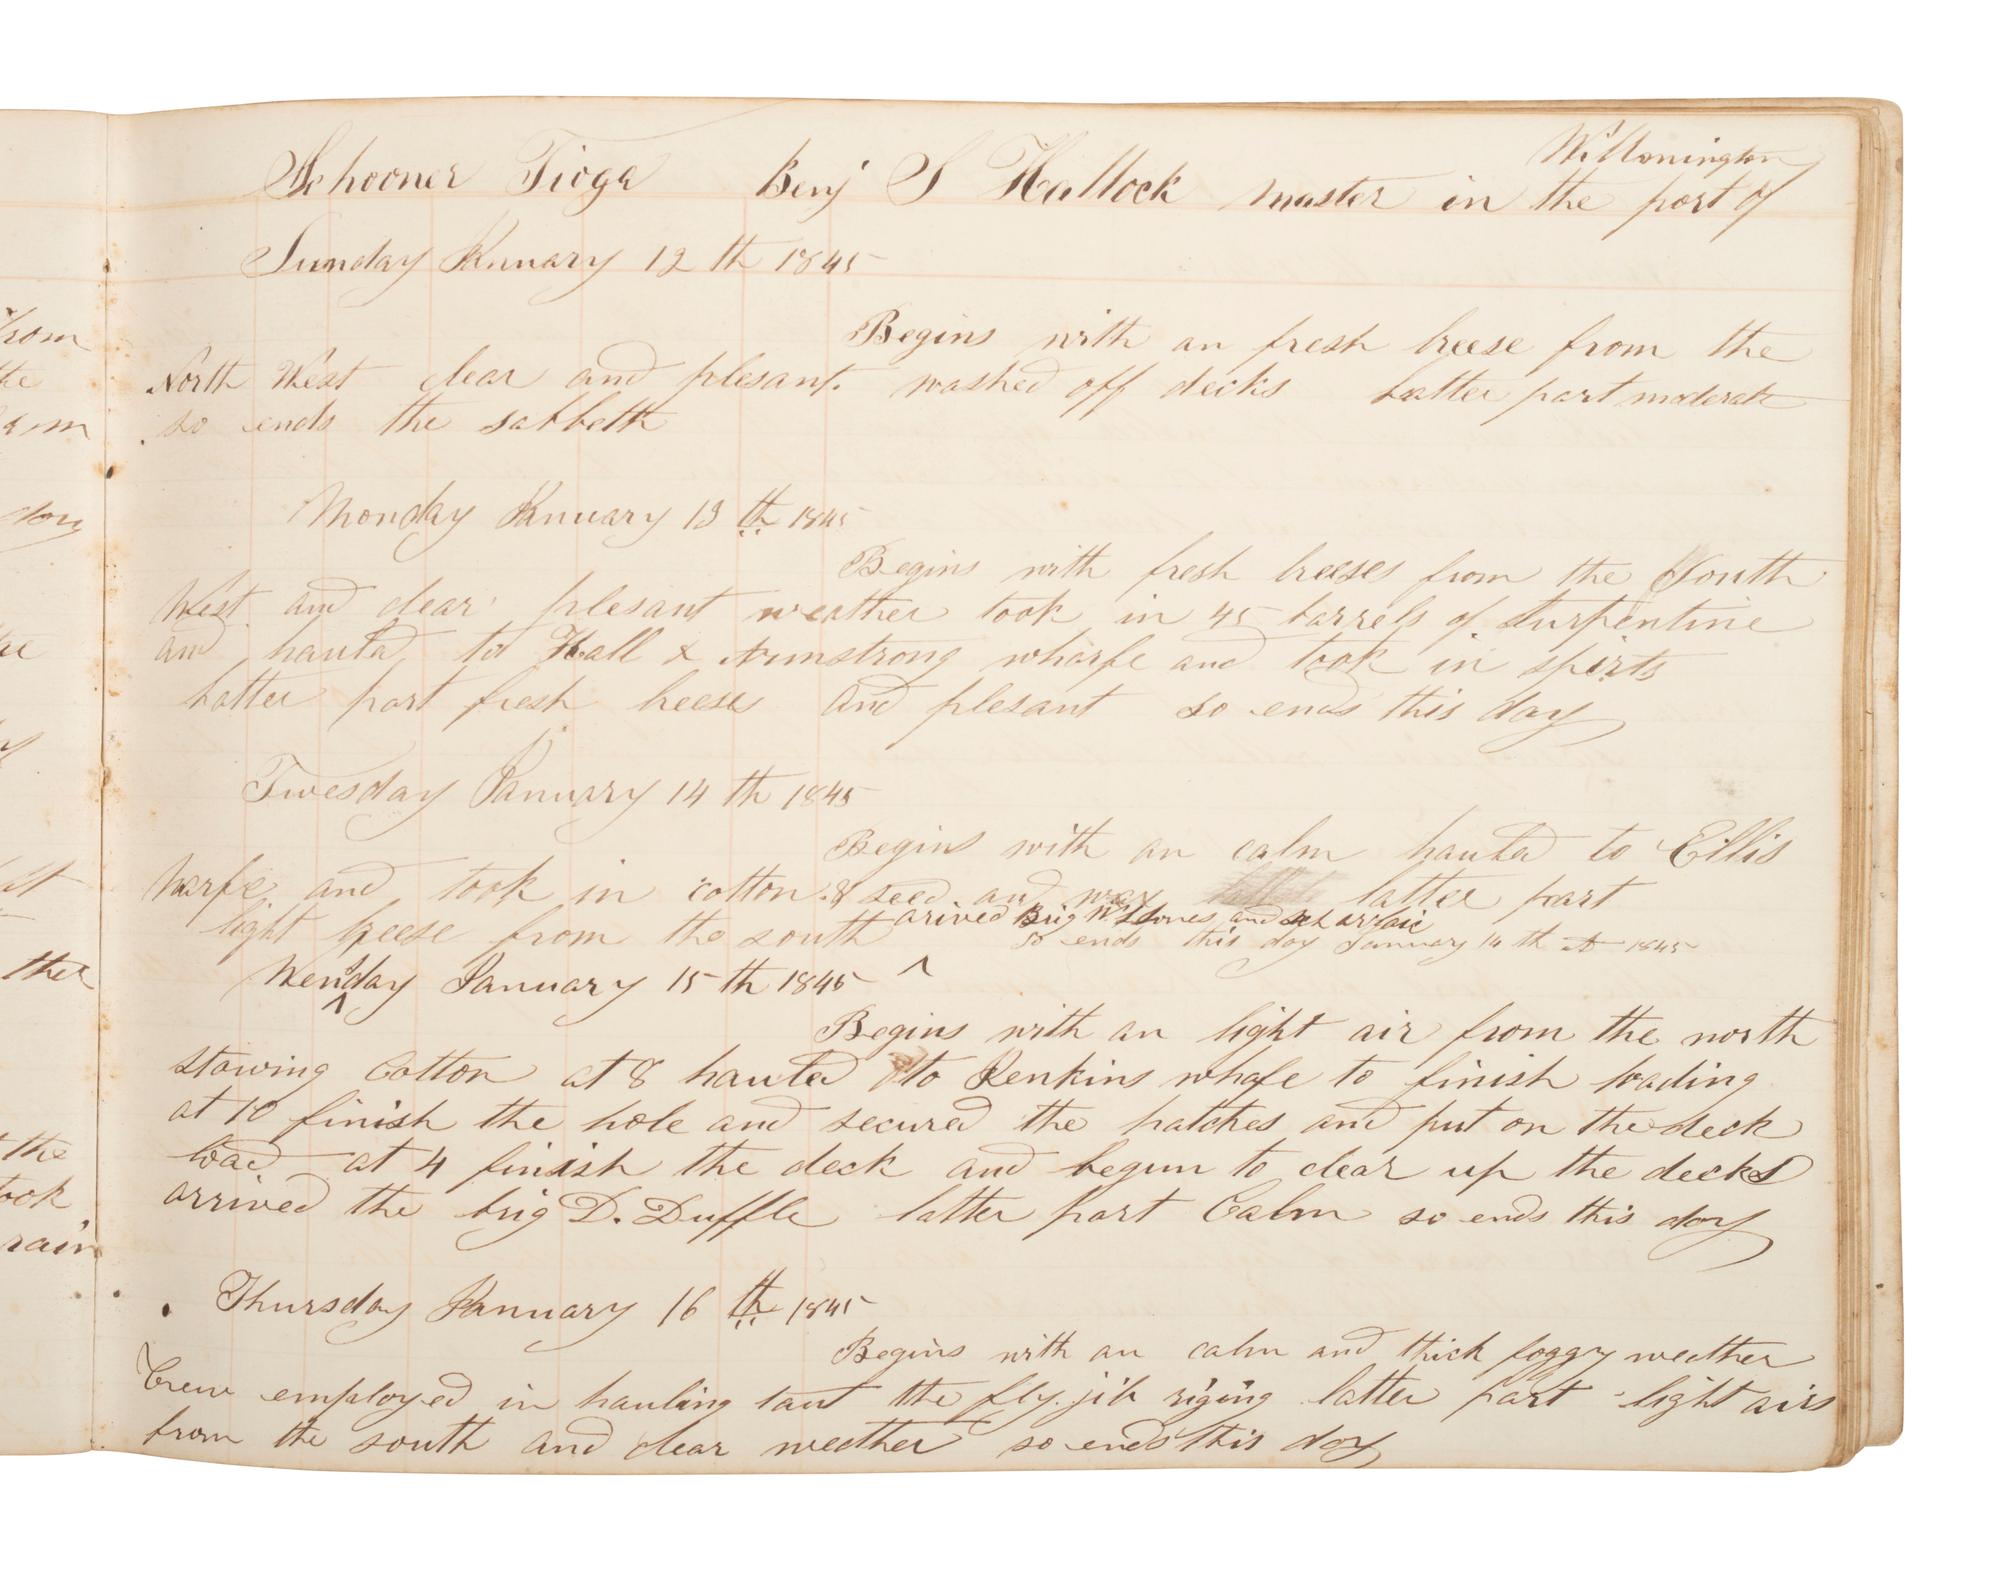 Willmington
Schooner Tioga Benj S Hallock master in the port of
Sunday January 12 th 1845
Begins with an fresh breese from the
North West clear and plesant. washed off decks Latter part moderate
so ends the sabbeth
Monday January 13 th 1845
Begins with fresh breeses from the South
West. and clear plesant weather took in 45 barrels of turpentine
and hauld to Hall & Armstrong wharfe and took in spirts
Latter part fresh breeses and plesant so ends this day
Tuesday January 14 th 1845
Begins with an calm hauld to Ellis
wharfe and took in cotton & seed and wax latter part
arived Brig and
light breese from the south ^ so ends this day January 14 th 1845
Wensday January 15 th 1845
Begins with an light air from the north
stowing Cotton at 8 hauled to Jenkins whafe to finish loading
at 10 finish the hole and secured the hatches and put on the deck
load at 4 finish the deck and begun to clear up the decks
arrived the brig D. Duffle latter part Calm so ends this day
Thursday January 16 th 1845
Begins with an calm and thick foggy weether
Crew employed in hauling taut the fly. jib riging latter part light airs
from the south and clear weether so ends this day
from
the
am
the
the
took
rain